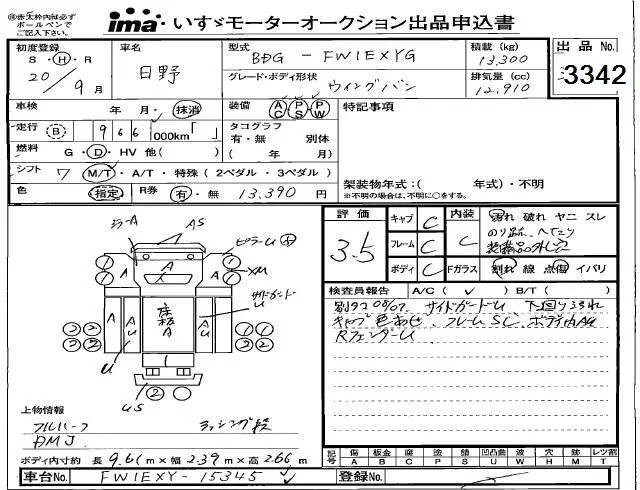 ※赤太枠内は必ずボールペンでご記入下さい
ima・いすゞモーターオークション出品申込書
初度登録 S・H・R 20/9月
車名 日野
型式 BDG-FW1EXYG
グレード・ボディ形状 ウイングバン
積載(kg) 13,300
排気量(cc) 12,910
出品No. 3342
車検 年 月・抹消
装備 AC PS PW
特記事項
走行 B 966,000km「 」
タコグラフ 有・無 別体
( 年 月)
燃料 G・D・HV 他( )
シフト 7 M/T・A/T・特殊(2ペダル・3ペダル)
架装物年式:( 年式)・不明
※不明の場合は、不明に○をする。
色 指定 R券 有・無 13,390 円
評価 3.5
キャブ C
フレーム C
ボディ C
内装 C
割れ 破れ ヤニ スレ
Fガラス 割れ 線 点傷 イバリ
検査員報告 A/C( ✓ ) B/T( )
別タコ08/07、サイドガードU、下回り
キャブ色あせ、フレームSC、ボディ内AU
RフェンダーU
ミラーA
AS
ピラーU
サイドガードU
床板A
US
上物情報
フルハーフ
PMJ
ラッシング
ボディ内寸約 長9.61m×幅2.39m×高2.66m
記号 傷A 板金B 腐C 塗P 錆S 凹凸曲U 凹曲W 穴H 跡M レツ割T
車台No. FW1EXY-15345
登録No.